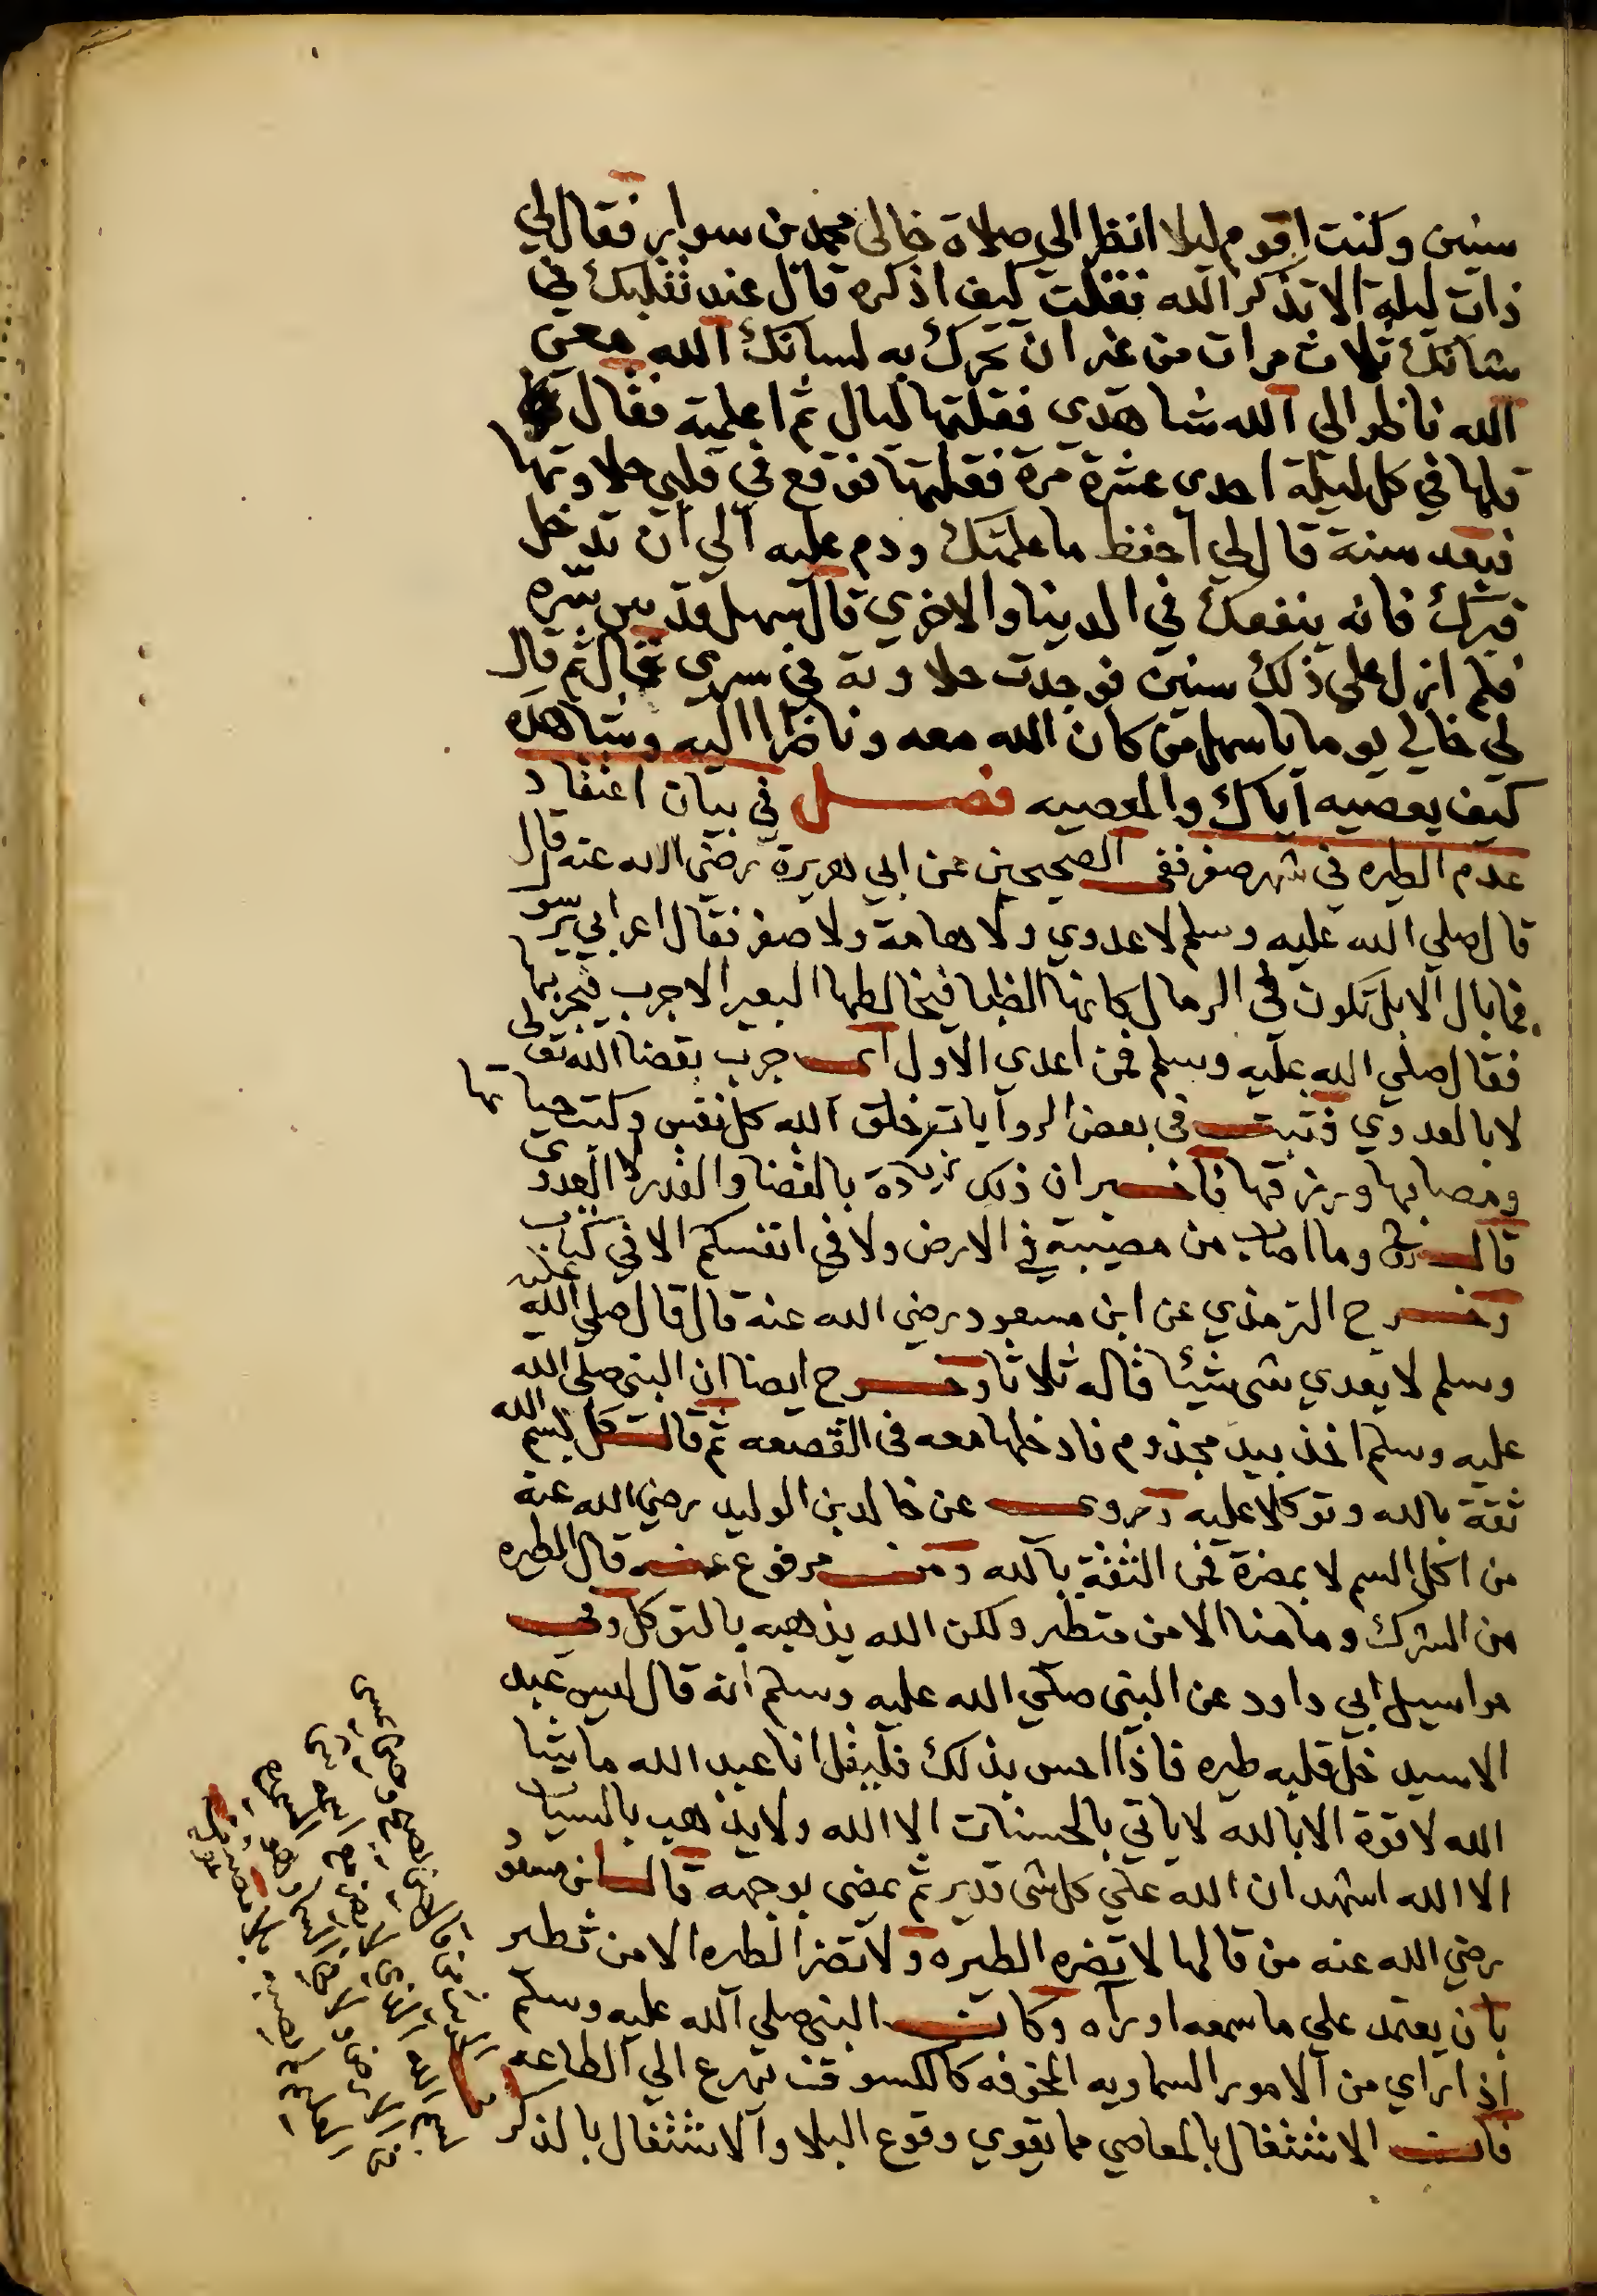 سنين وكنت اقوم ليلا انظر الي صلاة خالي محمد بن سوار فقال لي
ذات ليلة الا تذكر الله فقلت كيف اذكره قال عند تقلبك في
شانك ثلاث مرات من غير ان تحرك به لسانك الله معي
الله ناظر الي الله شاهدي فقلتها ليال ثم اعلمته فقال
قلها في كل ليلة احدي عشرة مرة فقلتها فوقع في قلبي حلاوتها
فبعد سنة قال لي احفظ ما علمتك ودم عليه الي ان تدخل
قبرك فانه ينفعك في الدينا والاخري قال سهل قدس سره
فلم ازل علي ذلك سنين فوجدت حلاوته في سري ثم قال
لي خالي يوما يا سهل من كان الله معه وناظرا اليه وشاهده
كيف يعصيه اياك والمعصيه فصل في بيان اعتقاد
عدم الطيره في شهر صفر ففي الصحيحين عن ابي هريرة رضي الله عنه قال
قال صلي الله عليه وسلم لا عدوي ولا هامة ولا صفر فقال اعرابي يرسو
فما بال الابل تكون في الرمال كانها الظبا فيخالطها البعير الاجرب فيجربها
فقال صلي الله عليه وسلم فمن اعدي الاول اي جرب بقضا الله تعالي
لا بالعدوي فثبت في بعض الروايات خلق الله كل نفس وكتب حياتها
ومصابها ورزقها فاخبر ان ذلك زيادة بالقضا والقدر لا العدوي
قال تعالي وما اصاب من مصيبة في الارض ولا في انفسكم الا في كتاب
وخرج الترمذي عن ابن مسعود رضي الله عنه قال قال صلي الله عليه
وسلم لا يعدي شي شيئا قاله ثلاثا وخرج ايضا ان النبي صلي الله
عليه وسلم اخذ بيد مجذوم فادخلها معه في القصعه ثم قال كل بسم الله
ثقة بالله وتوكلا عليه وروي عن خالد بن الوليد رضي الله عنه
من اكل السم لا بمضرة فمن الثقة بالله ومن مرفوع عنه قال الطيره
من الشرك وما منا الا من متطير ولكن الله يذهبه بالتوكل وفي
مراسيل ابي داود عن النبي صلي الله عليه وسلم انه قال ليس عبد
الا سيدخل قلبه طيره فاذا احس بذلك فليقل انا عبد الله ما شا
الله لا قوة الا بالله لا ياتي بالحسنات الا الله ولا يذهب بالسيات
الا الله اشهد ان الله علي كل شي قدير ثم يمضي بوجهه قال ابن مسعود
رضي الله عنه من قالها لا تضره الطيره ولا تضر الطيره الا من تطير
بان يعتمد علي ما سمعه او رآه وكان النبي صلي الله عليه وسلم
اذا راي من الامور السماويه المخوفه كالكسوف يهرع الي الطاعه
فان الاشتغال بالمعاصي مما يقوي وقوع البلا والاشتغال بالذكر